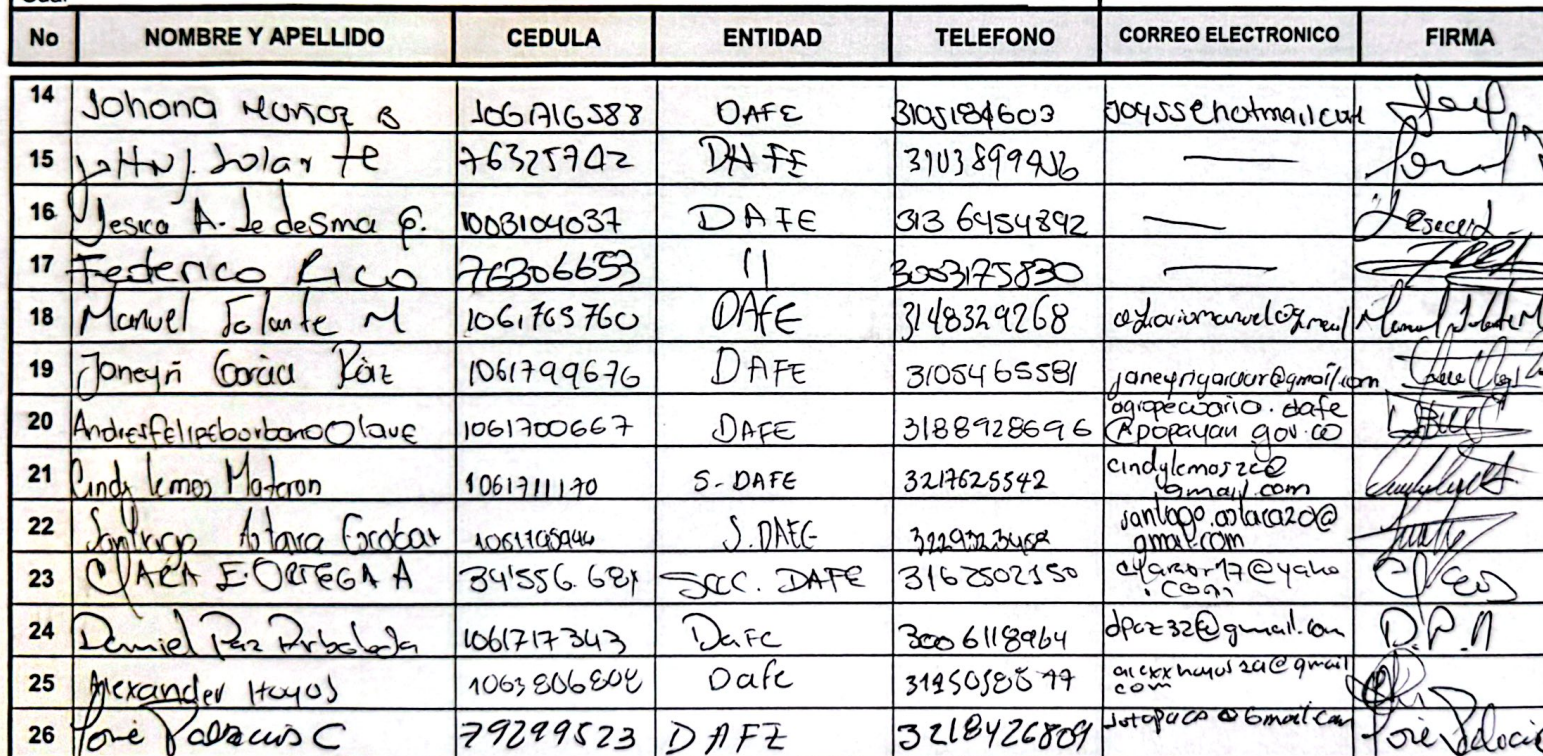 No NOMBRE Y APELLIDO CEDULA ENTIDAD TELEFONO CORREO ELECTRONICO FIRMA
14 Johana Muñoz B 1061716588 DAFE 3105184603 joyss@hotmail.com
15 Jhon J. Solarte 76325742 DAFE
16 Jesica A. Ledesma G. 1003104037 DAFE 313 6454892 —
17 Federico Rico 76306653 11 3053175830 —
18 Manuel Solarte M 1061765760 DAFE 3148329268 Manuel Solarte M
19 Janeyri Garcia Ruiz 1061799676 DAFE 3105465581 janeyrigarciar@gmail.com
20 Andres felipe borbano Olave 1061700667 DAFE 3188928696 agropecuario.dafe
@popayan.gov.co
21 Cindy lemos Materon 1061711170 S-DAFE 3217625542 cindylemos2c@
gmail.com
22 Santiago Astaiza Escobar S.DAFE santiago.astaiza20@
gmail.com
23 CLARA E. ORTEGA A 34'556.681 SECC. DAFE 3162502150 @yaho
.com
24 Daniel Paz Arboleda 1061717343 Dafe 3006118964 dpaz32@gmail.com D.P.A
25 Alexander Hoyos Dafe alexxhoyos2a@gmail
com
26 José Palacios C 79299523 DAFE 3218426809 José Palacios